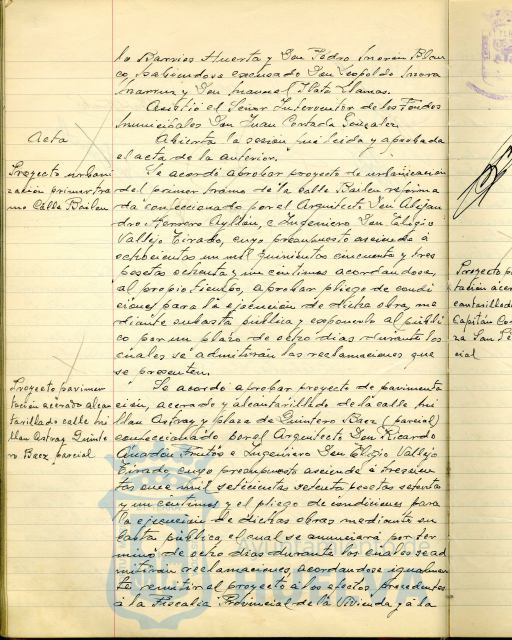 lo Barrios Huerta y Don Pedro Morán Blan
co, habiéndose excusado Don Leopoldo
y Don Manuel Llamas.
Asistió el Señor Interventor de los Fondos
Municipales Don Juan González.
Acta
Abierta la sesión fué leida y aprobada
el acta de la anterior.
Proyecto urbani
zación primer tra
mo Calle Bailen
Se acordó aprobar proyecto de urbanización
del primer tramo de la calle Bailen reforma
da confeccionado por el Arquitecto Don Alejan
dro Herrero Ayllón, e Ingeniero Don Eligio
Vallejo Tirado, cuyo presupuesto asciende á
ochocientas un mil quinientas cincuenta y tres
pesetas ochenta y un centimos acordandose,
al propio tiempo, aprobar pliego de condi
ciones para la ejecución de dicha obra, me
diante subasta pública y exponerlo al públi
co por un plazo de ocho dias durante los
cuales se admitirán las reclamaciones que
se presenten.
Proyecto pavimen
tación acerado alcan
tarillado calle Mi
llan Astray Quinte
ro Baez parcial
Se acordó aprobar proyecto de pavimenta
ción, acerado y alcantarillado de la calle Mi
llan Astray y plaza de Quintero Baez (parcial)
confeccionado por el Arquitecto Don Ricardo
Anadón Frutos e Ingeniero Don Eligio Vallejo
Tirado, cuyo presupuesto asciende á trescien
tas once mil setecientas setenta pesetas setenta
y un centimos y el pliego de condiciones para
la ejecución de dichas obras mediante su
basta pública, el cual se anunciará por ter
mino de ocho dias durante los cuales se ad
mitirán reclamaciones, acordandose igualmen
te remitir el proyecto á los efectos procedentes
á la Fiscalia Provincial de la Vivienda y á la
Proyecto pa
tación acer
cantarillado
Capitán Cor
za San Pe
cial
Ayuntamiento de
HUELVA